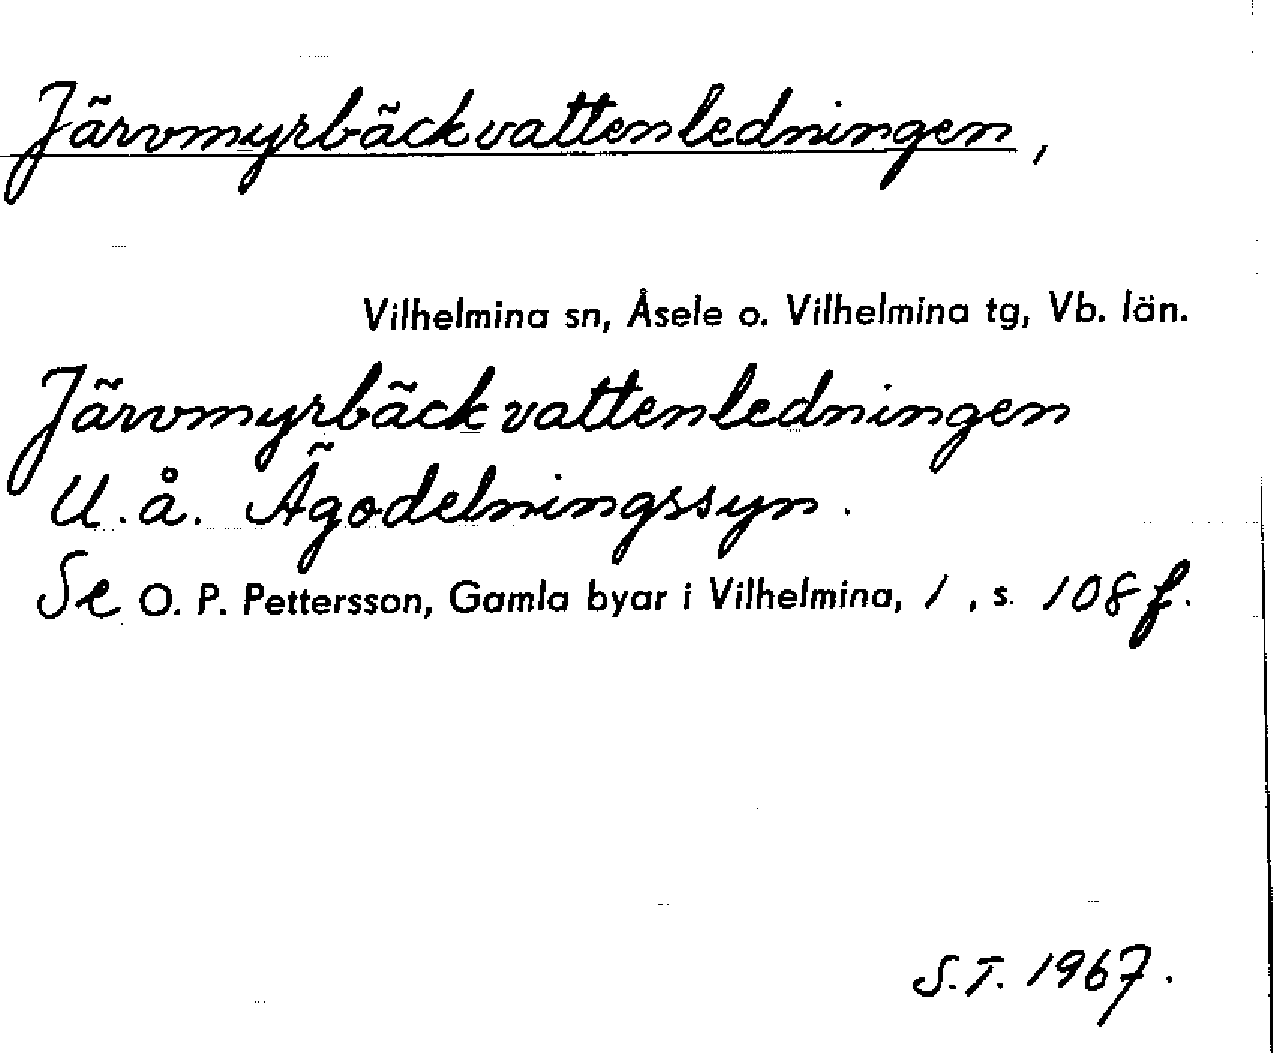 Järvmyrbäckvattenledningen,
Vilhelmina sn, Åsele o. Vilhelmina tg, Vb. län.
Järvmyrbäckvattenledningen
U.å. Ägodelningssyn.
Se O. P. Pettersson, Gamla byar i Vilhelmina, 1, s. 108 f.
S.T. 1967.